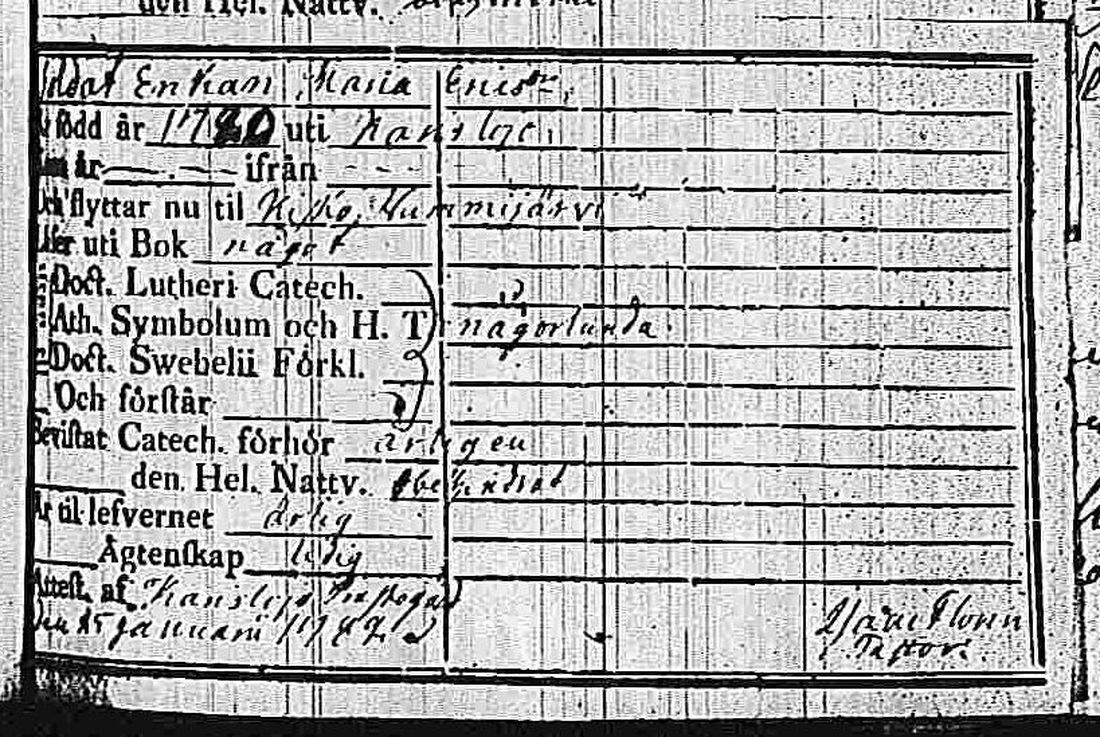 den Hel. Nattv.
Soldat Enkan Maria Erics dr.
Är född år 1780 uti Karislojo.
Kom år — . — ifrån - - -
Och flyttar nu til Kisko, Hummijärvi
Läser uti Bok något
Doct. Lutheri Catech.
Ath. Symbolum och H. T. någorlunda.
Doct. Swebelii Förkl.
Och förstår
Bevistat Catech. förhör årligen
den Hel. Nattv. obehindrad
Är til lefvernet ärlig
Ägtenskap ledig
Attest. af Karislojo Prästgård
Den 15 Januarii
Pastor.